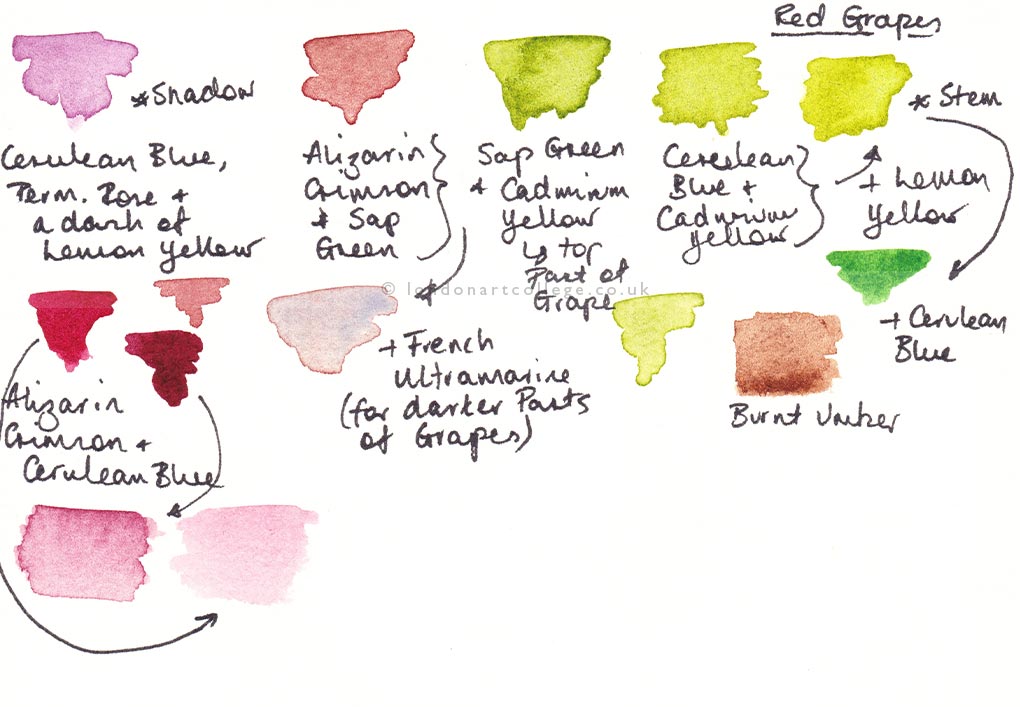 Red Grapes
* Shadow
Cerulean Blue,
Perm. Rose +
a dash of
Lemon Yellow
Alizarin
Crimson
+ Sap
Green
Sap Green
+ Cadmium
Yellow
↳ top
Part of
Grape
Cerulean
Blue +
Cadmium
Yellow
* Stem
+ Lemon
Yellow
+ Cerulean
Blue
© londonartcollege.co.uk
+ French
Ultramarine
(for darker Parts
of Grapes)
Burnt Umber
Alizarin
Crimson +
Cerulean Blue